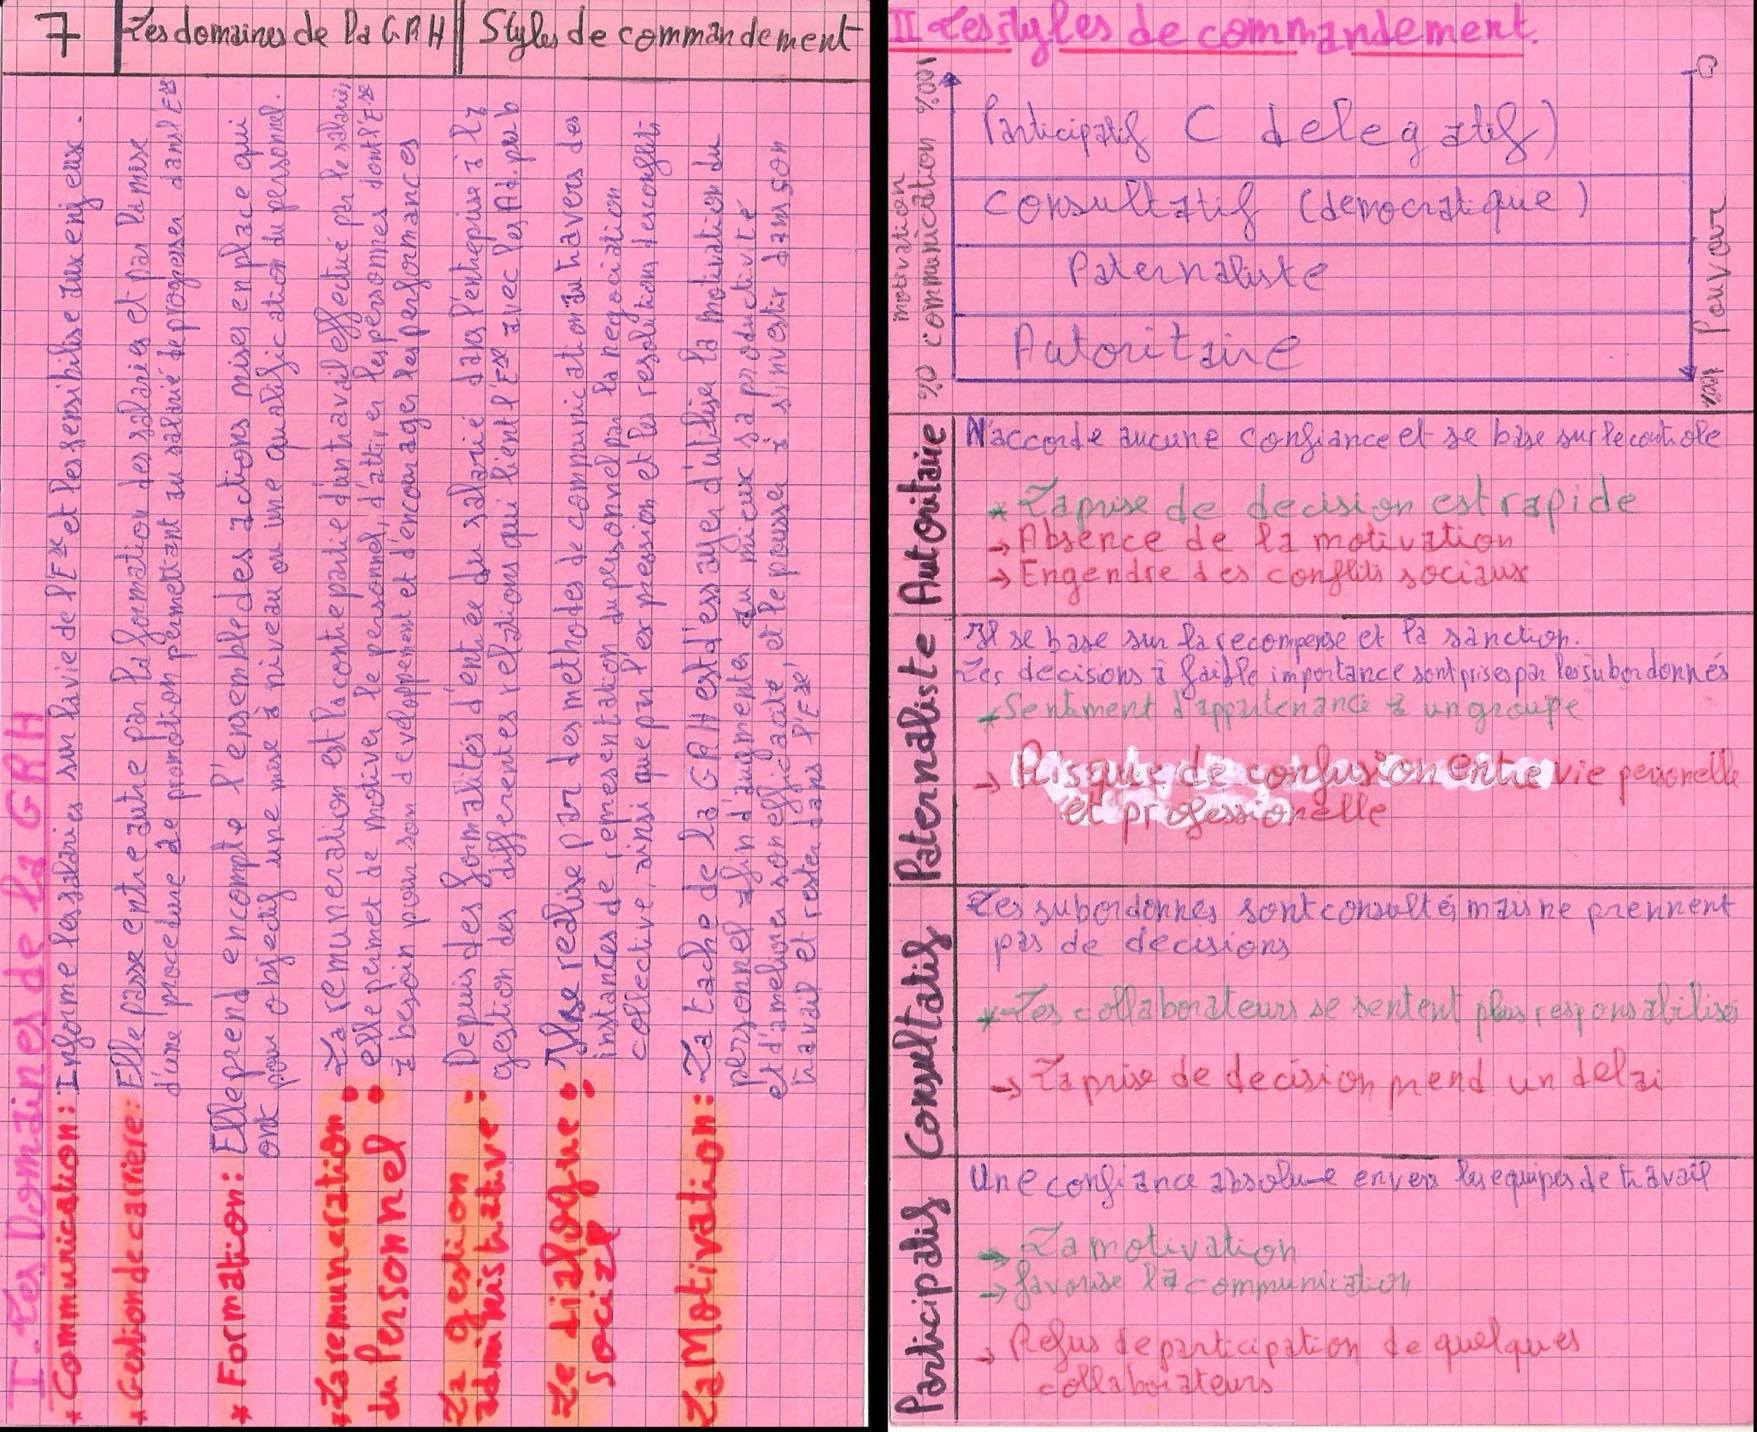 7 Les domaines de la GRH Styles de commandement
I. Les Domaines de la GRH
* Communication: Informe les salaries sur la vie de l'Ese et les sensibilise aux enjeux.
* Gestion de carriere: Elle passe entre autre par la formation des salaries et par la mise
d'une procedure de promotion permettant au salarié de progresser dans l'Ese
* Formation: Elle prend en compte l'ensemble des actions mises en place qui
ont pour objectif une mise à niveau ou une qualification du personnel.
* La remuneration du Personnel: La remuneration est la contre partie d'un travail effectué par le salarié,
elle permet de motiver le personnel, d'attirer les personnes dont l'Ese
a besoin pour son developpement et d'encourager les performances
La gestion administrative: Depuis des formalités d'entrée du salarié dans l'entreprise à la
gestion des differentes relations qui lient l'Ese avec les Ad. pub
Le dialogue social: se realise par des methodes de communication au travers des
instances de representation du personnel par la negociation
collective, ainsi que par l'expression et les resolutions des conflits
La Motivation: La tache de la GRH est d'essayer d'utiliser la motivation du
personnel afin d'augmenter au mieux sa productivité
et d'ameliorer son efficacité, et le pousser à s'investir dans son
travail et rester dans l'Ese
II Les styles de commandement.
motivation
0% communication 100%
Participatif (delegatif)
Consultatif (democratique)
Paternaliste
Autoritaire
0 Pouvoir 100%
Autoritaire
N'accorde aucune confiance et se base sur le controle
* La prise de decision est rapide
→ Absence de la motivation
→ Engendre des conflits sociaux
Paternaliste
Il se base sur la recompense et la sanction.
Les decisions à faible importance sont prises par les subordonnés
* Sentiment d'appartenance à un groupe
→ Risque de confusion entre vie personelle
et professionelle
Consultatif
Les subordonnes sont consultés mais ne prennent
pas de decisions
* Les collaborateurs se sentent plus responsabilisés
→ La prise de decision prend un delai
Participatif
Une confiance absolue envers les equipes de travail
→ La motivation
→ favorise la communication
→ Refus de participation de quelques
collaborateurs